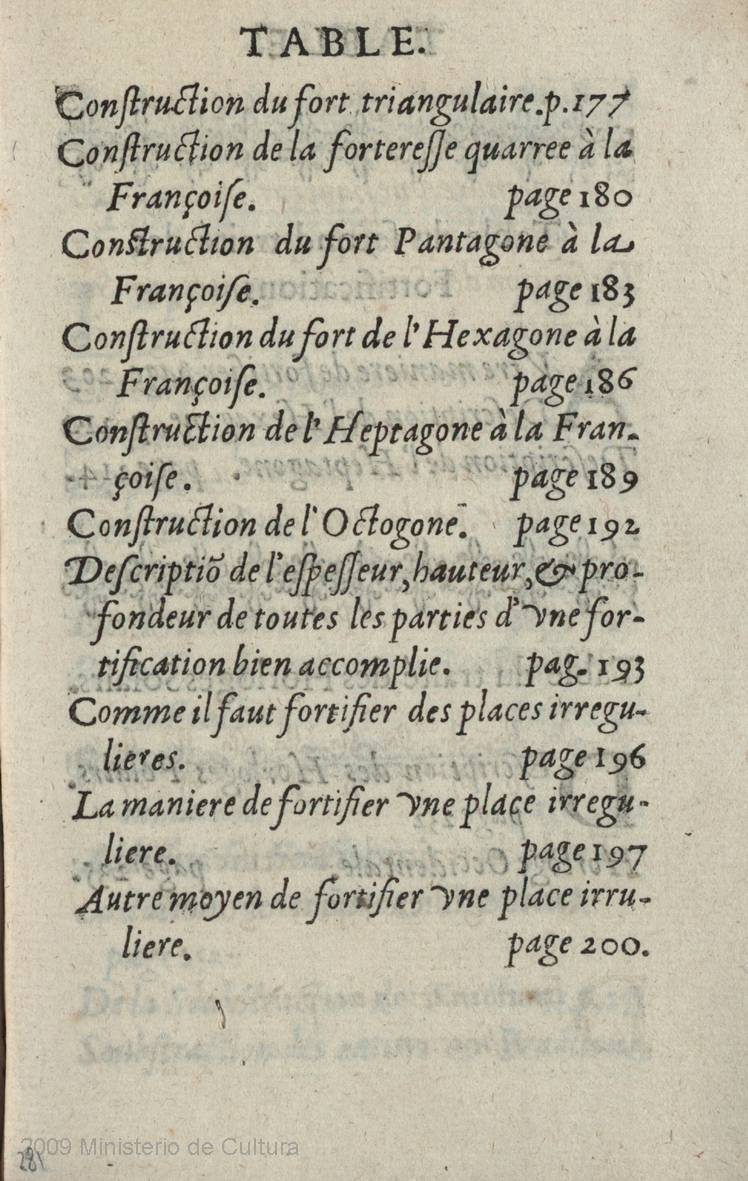 TABLE.
Conſtruction du fort triangulaire.p.177
Conſtruction de la fortereſſe quarree à la
Françoiſe. page 180
Conſtruction du fort Pantagone à la
Françoiſe. page 183
Conſtruction du fort de l'Hexagone à la
Françoiſe. page 186
Conſtruction de l'Heptagone à la Fran-
çoiſe. page 189
Conſtruction de l'Octogone. page 192
Deſcriptiõ de l'eſpeſſeur, hauteur, & pro-
fondeur de toutes les parties d'vne for-
tification bien accomplie. pag. 193
Comme il faut fortifier des places irregu-
lieres. page 196
La maniere de fortifier vne place irregu-
liere. page 197
Autre moyen de fortifier vne place irru-
liere. page 200.
2009 Ministerio de Cultura